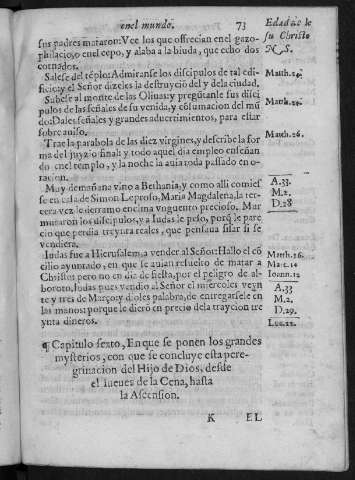 enel mundo. 73 Edad de le
su Christo
N, S.
sus padres mataron: Vee los que offrecian enel gazo-
philacio, o en el cepo, y alaba a la biuda, que echo dos
cornados.
Salese del tēplo: Admiranse los discipulos de tal edi-
ficio: y el Señor dizeles la destruyciō del y dela ciudad. Matth. 24.
Subese al monte de las Oliuas: y pregūtanle sus disci-
pulos de las señales de su venida, y cōsumacion del mū Matth. 24.
do: Dales señales y grandes aduertimientos, para estar
sobre auiso.
Trae la parabola de las diez virgines, y descriue la for Matth. 26.
ma del juyzio final: y todo aquel dia empleo enseñan
do enel templo, y la noche la auia toda passado en o-
racion.
Muy demañana vino a Bethania, y como alli comies A.33.
se en casa de Simon Leproso, Maria Magdalena, la ter- M.2.
cera vez le derramo encima vnguento precioso. Mur D.28
muraron los discipulos, y a Iudas le peso, porq̃ le pare
cio que perdia treynta reales, que pensaua sisar si se
vendiera.
Iudas fue a Hierusalem, a vender al Señor: Hallo el cō
cilio ayuntado, en que se auian resuelto de matar a Matth. 26.
Christo: pero no en dia de fiesta, por el peligro de al- Marc. 14
boroto, Iudas pues vendio al Señor el miercoles veyn Ioann. 12
te y tres de Março: y dioles palabra, de entregarsele en A.33
las manos: porque le dierō en precio dela traycion tre M.2.
ynta dineros. D.29.
Luc. 22.
¶ Capitulo sexto, En que se ponen los grandes
mysterios, con que se concluye esta pere-
grinacion del Hijo de Dios, desde
el Iueues de la Cena, hasta
la Ascension.
K EL